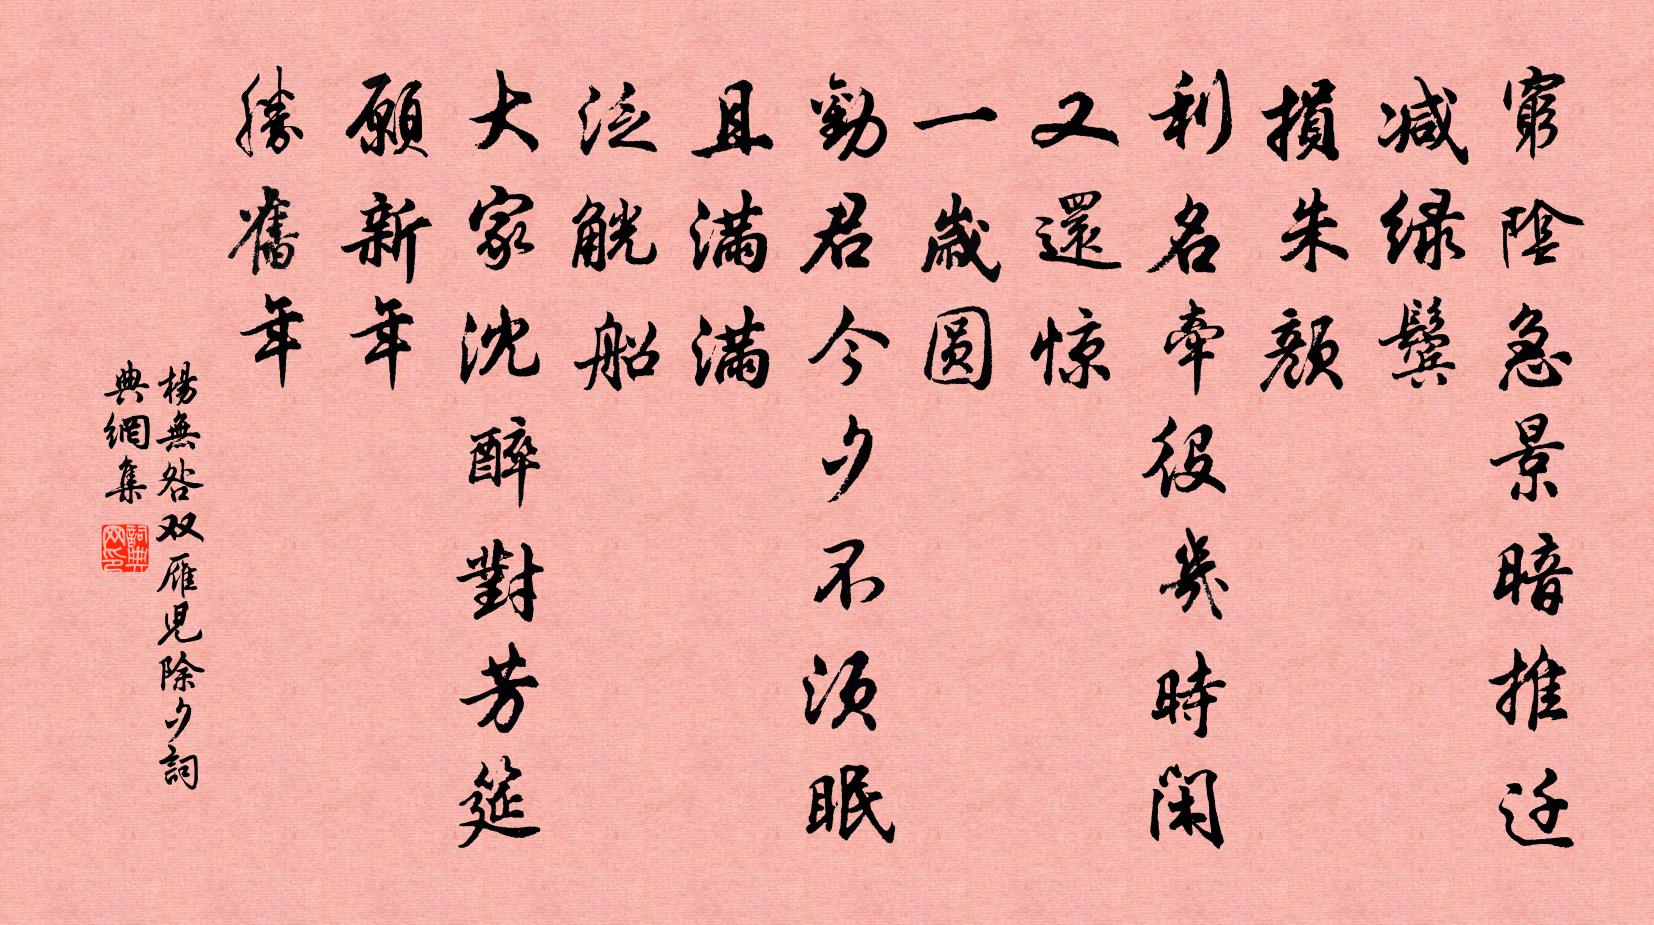 窮陰急景暗推迁
减绿鬓
損朱颜
利名牵役幾時閑
又還惊
一歲圆
勸君今夕不须眠
且满满
泛觥船
大家沈醉對芳筵
願新年
勝舊年
楊無咎双雁児除夕詞
典網集
詞典
网印